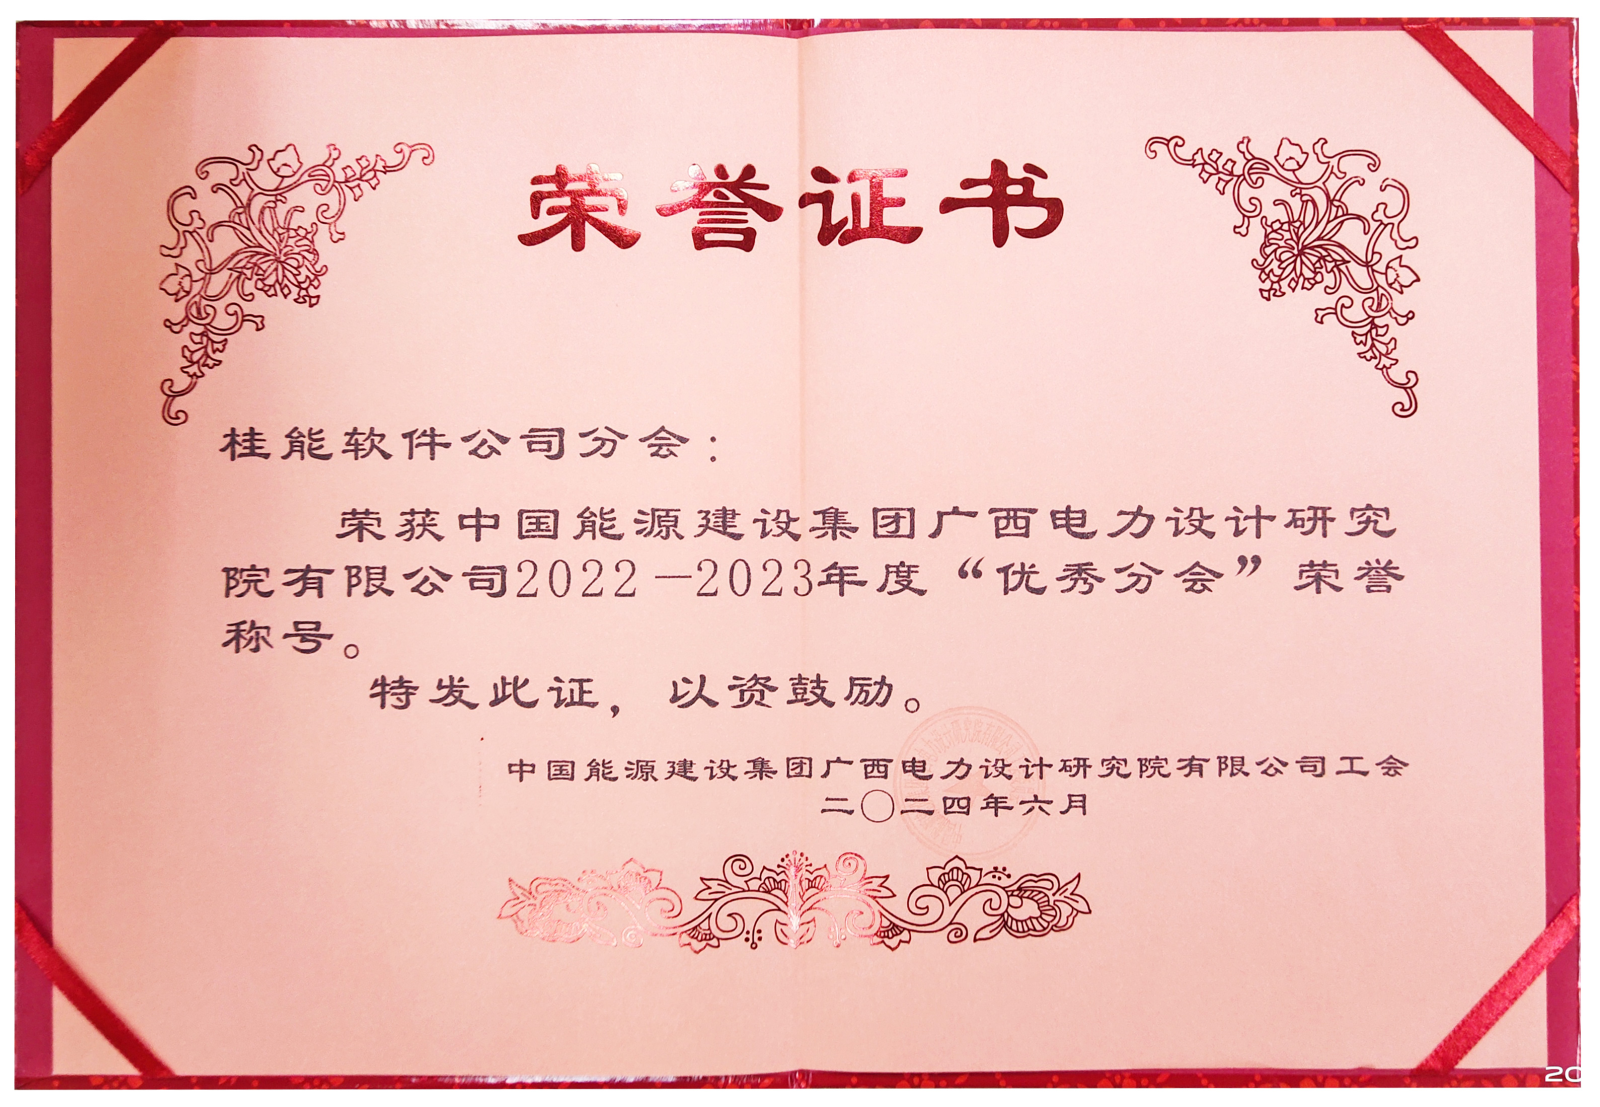 荣誉证书
桂能软件公司分会：
荣获中国能源建设集团广西电力设计研究
院有限公司2022—2023年度“优秀分会”荣誉
称号。
特发此证，以资鼓励。
中国能源建设集团广西电力设计研究院有限公司工会
二〇二四年六月
20